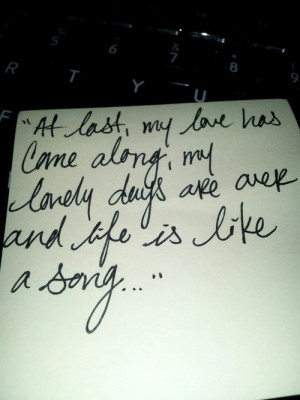 5 6 7 8 9
R T Y U
F
"At last, my love has
Come along, my
lonely days are over
and life is like
a song..."